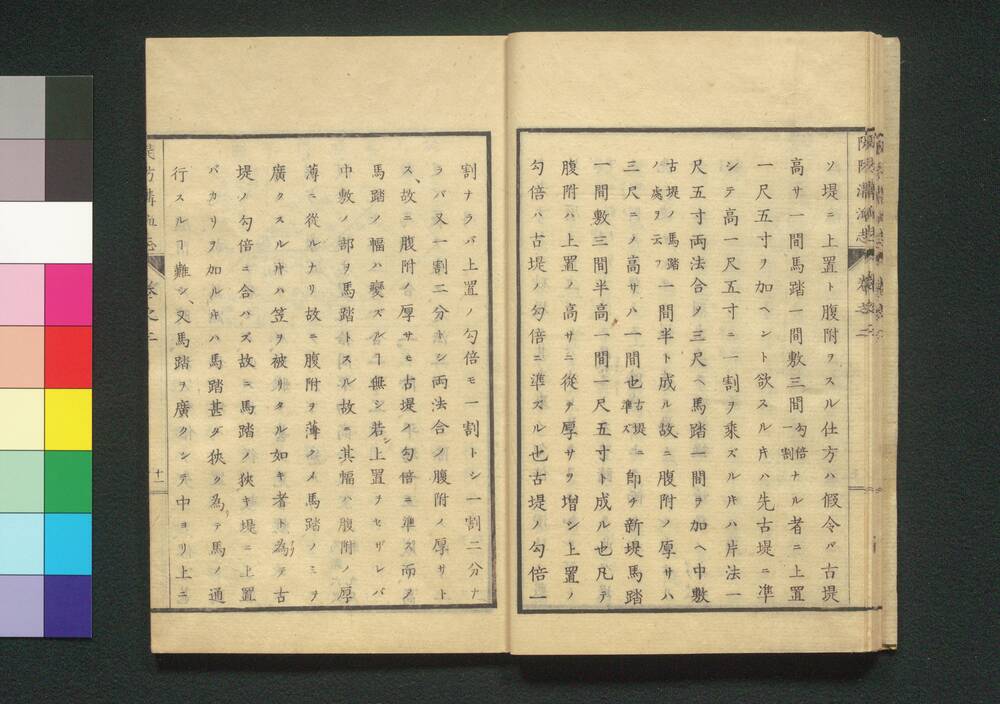 ソ堤ニ上置ト腹附ヲスル仕方ハ假令バ古堤
高サ一間馬踏一間敷三間勾倍一割ナル者ニ上置
一尺五寸ヲ加ヘント欲スル片ハ先古堤ニ準
シテ高一尺五寸ニ一割ヲ乗ズル片ハ片法一
尺五寸両法合ノ三尺ヘ馬踏一間ヲ加ヘ中敷
古堤ノ馬踏ノ處ヲ云フ一間半ト成ル故ニ腹附ノ厚サハ
三尺ニノ高サハ一間也古堤ニ準ズ即チ新堤馬踏
一間敷三間半高一間一尺五寸ト成ル也凡テ
腹附ハ上置ノ高サニ從テ厚サヲ増シ上置ノ
勾倍ハ古堤ノ勾倍ニ準ズル也古堤ノ勾倍一
割ナラバ上置ノ勾倍モ一割トシ一割二分ナ
ラバ又一割二分トシ両法合ノ腹附ノ厚サト
ス故ニ腹附ノ厚サモ古堤ノ勾倍ニ準ズ而ノ
馬踏ノ幅ハ變ズルヿ無シ若シ上置ヲセザレバ
中敷ノ部ヲ馬踏トスル故ニ其幅ハ腹附ノ厚
薄ニ從ルナリ故ニ腹附ヲ薄クノ馬踏ノミヲ
廣クスル片ハ笠ヲ被リタル如キ者ト為リテ古
堤ノ勾倍ニ合ハズ故ニ馬踏ノ狹キ堤ニ上置
バカリヲ加ル片ハ馬踏甚ダ狹ク為リテ馬ノ通
行スルヿ難シ又馬踏ヲ廣クシテ中ヨリ上ニ
卷之二
十一